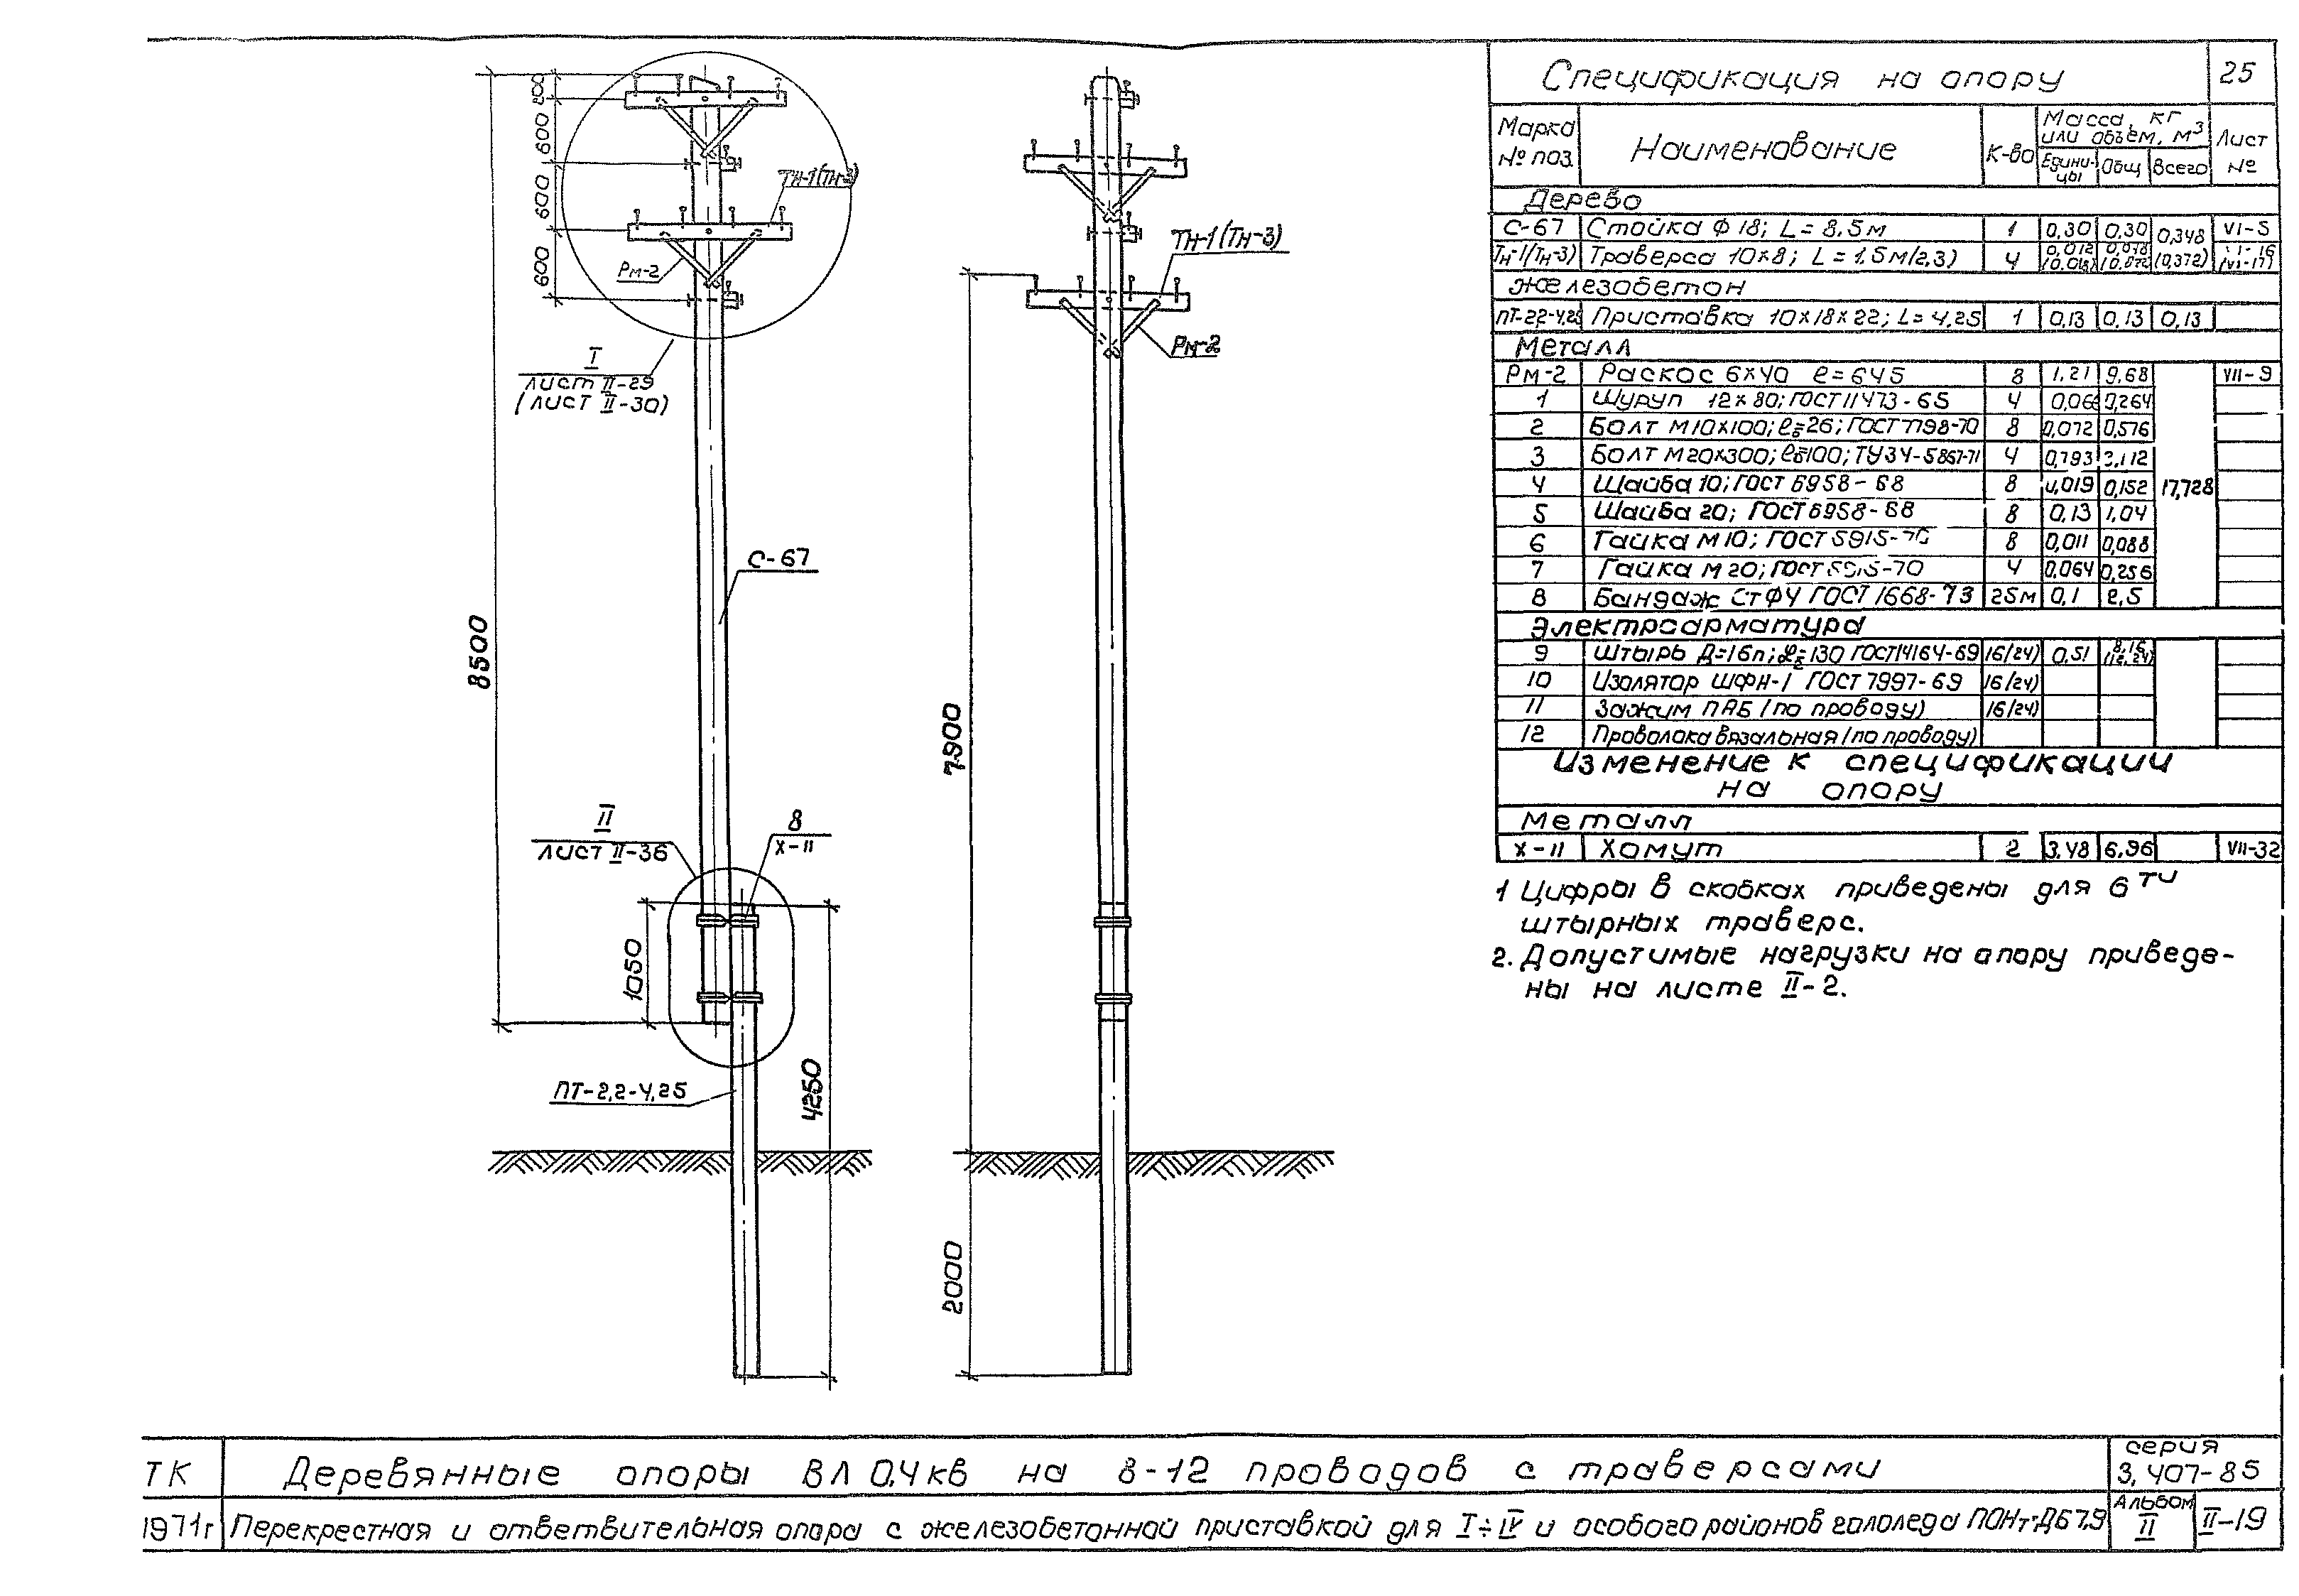 Спецификация на опору 25
Марка № поз. Наименование К-во Масса, кг или объём, м³ Единицы Общ Всего Лист №
Дерево
С-67 Стойка Ф 18; L = 8.5м 1 0,30 0,30 0,348 VI-5
Тн-1(Тн-3) Траверса 10×8; L = 1,5м(2,3) 4 0,012 (0,018) 0,048 (0,072) (0,372) VI-16 (VI-17)
Железобетон
ПТ-22-4,25 Приставка 10×18×22; L= 4,25 1 0,13 0,13 0,13
Металл
Рм-2 Раскос 6×40 ℓ=645 8 1,21 9,68 17,728 VII-9
1 Шуруп 12×80; ГОСТ 11473-65 4 0,066 0,264
2 Болт М10×100; ℓ=26; ГОСТ 7798-70 8 0,072 0,576
3 Болт М20×300; ℓ=100; ТУ34-5867-71 4 0,793 3,172
4 Шайба 10; ГОСТ 6958-68 8 0,019 0,152
5 Шайба 20; ГОСТ 6958-68 8 0,13 1,04
6 Гайка М10; ГОСТ 5915-70 8 0,011 0,088
7 Гайка М20; ГОСТ 5915-70 4 0,064 0,256
8 Бандаж Ст Ф4 ГОСТ 1668-73 25м 0,1 2,5
Электроарматура
9 Штырь Д=16п; ℓ=130 ГОСТ14164-69 16(24) 0,51 8,16 (12,24)
10 Изолятор ШФН-1 ГОСТ 7997-69 16(24)
11 Зажим ПАБ (по проводу) 16(24)
12 Проволока вязальная (по проводу)
Изменение к спецификации
на опору
Металл
Х-11 Хомут 2 3,48 6,96 VII-32
1 Цифры в скобках приведены для 6ти
штырных траверс.
2. Допустимые нагрузки на опору приведе-
ны на листе II-2.
200
600
600
600
8500
Тн-1(Тн-3)
Рм-2
I
лист II-29
(лист II-30)
С-67
II
лист II-36
8
Х-11
1050
4250
ПТ-2,2-4,25
Тн-1(Тн-3)
Рм-2
7900
2000
ТК Деревянные опоры ВЛ 0,4кв на 8-12 проводов с траверсами серия 3.407-85
1971г Перекрестная и ответвительная опора с железобетонной приставкой для I÷IV и особого районов гололеда ПОНт-Д67,9 Альбом II II-19